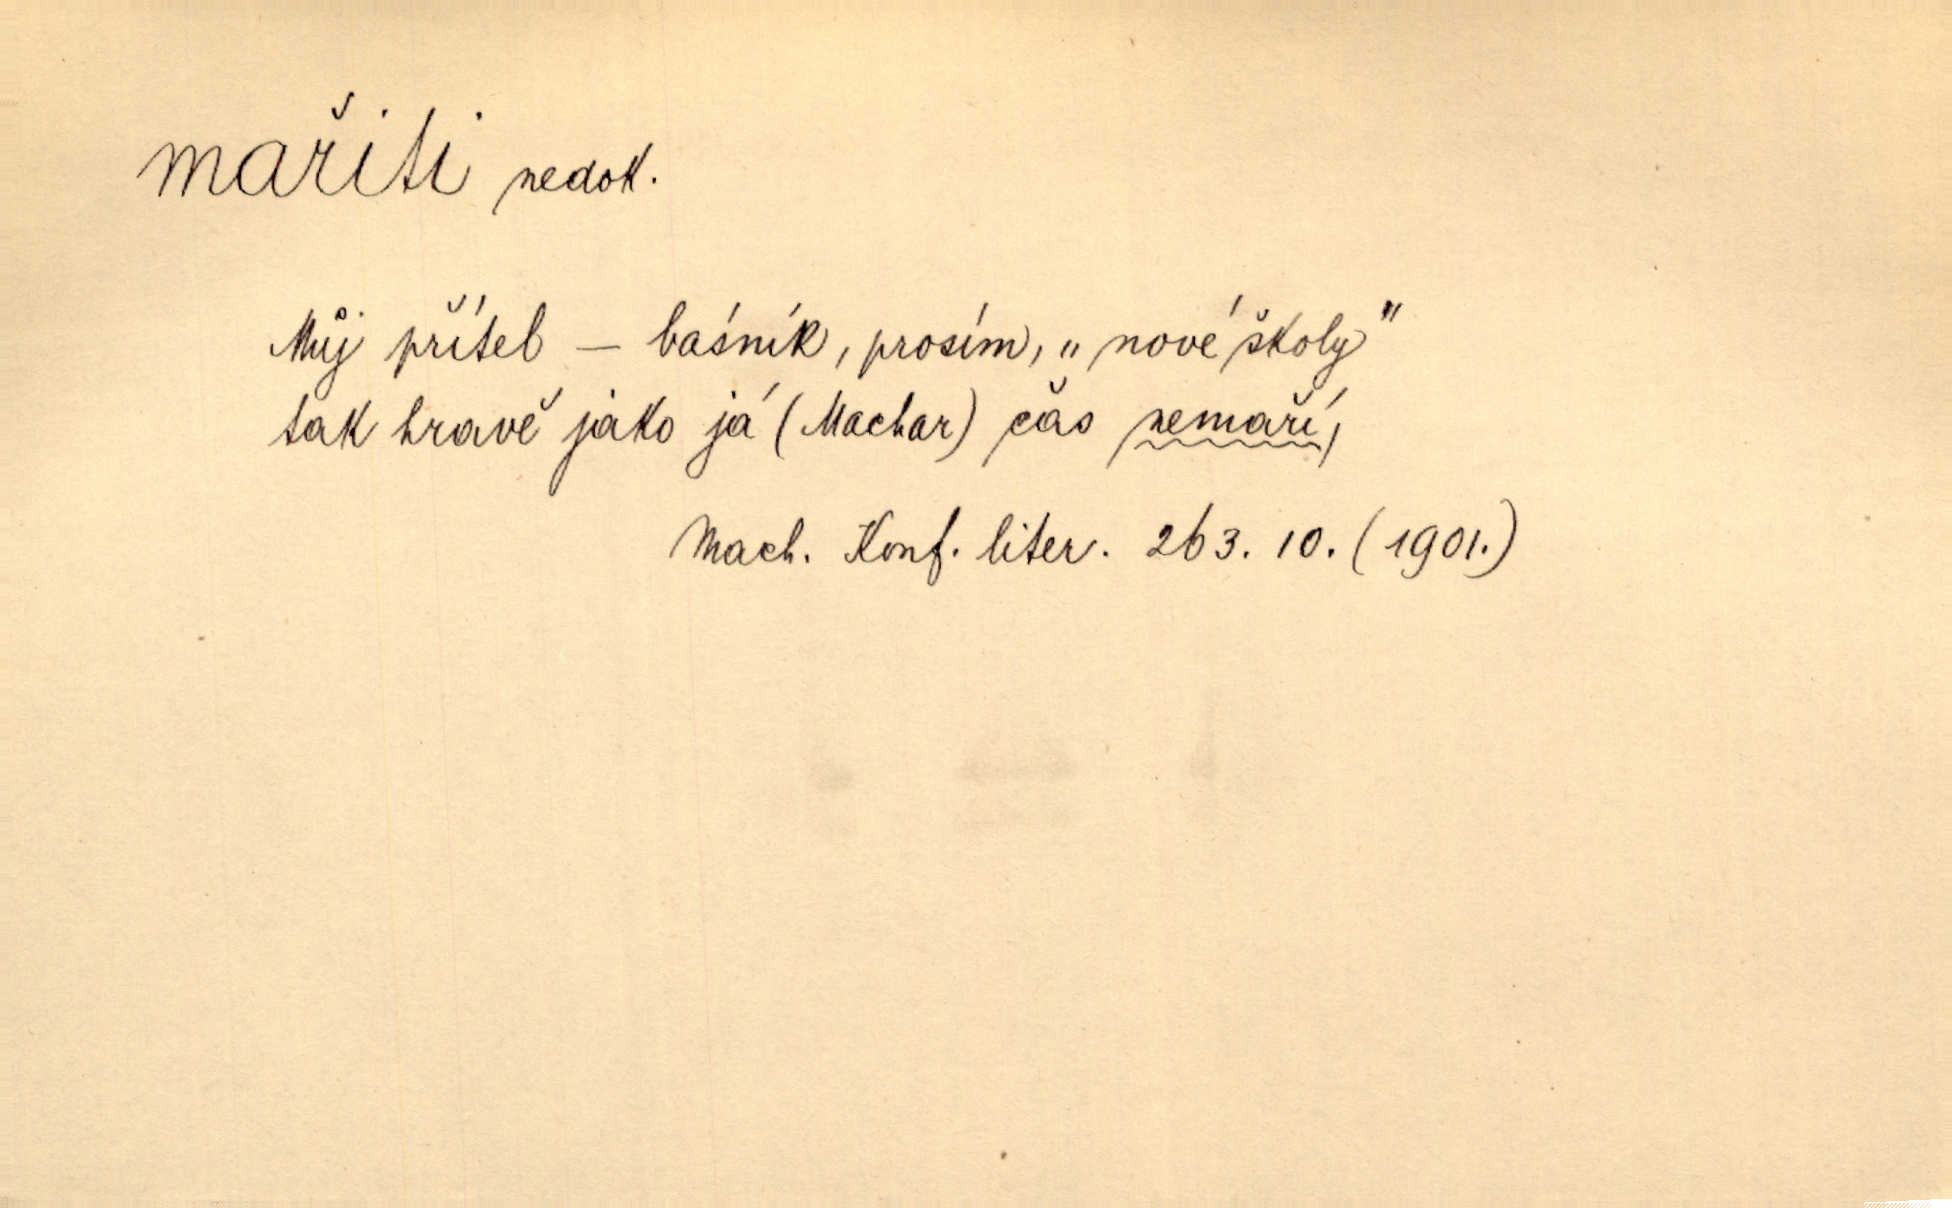 mařiti nedok.
Můj přítel – básník, prosím, „nové školy"
tak hravě jako já (Machar) čas nemaří,
Mach. Konf. liter. 263. 10. (1901.)